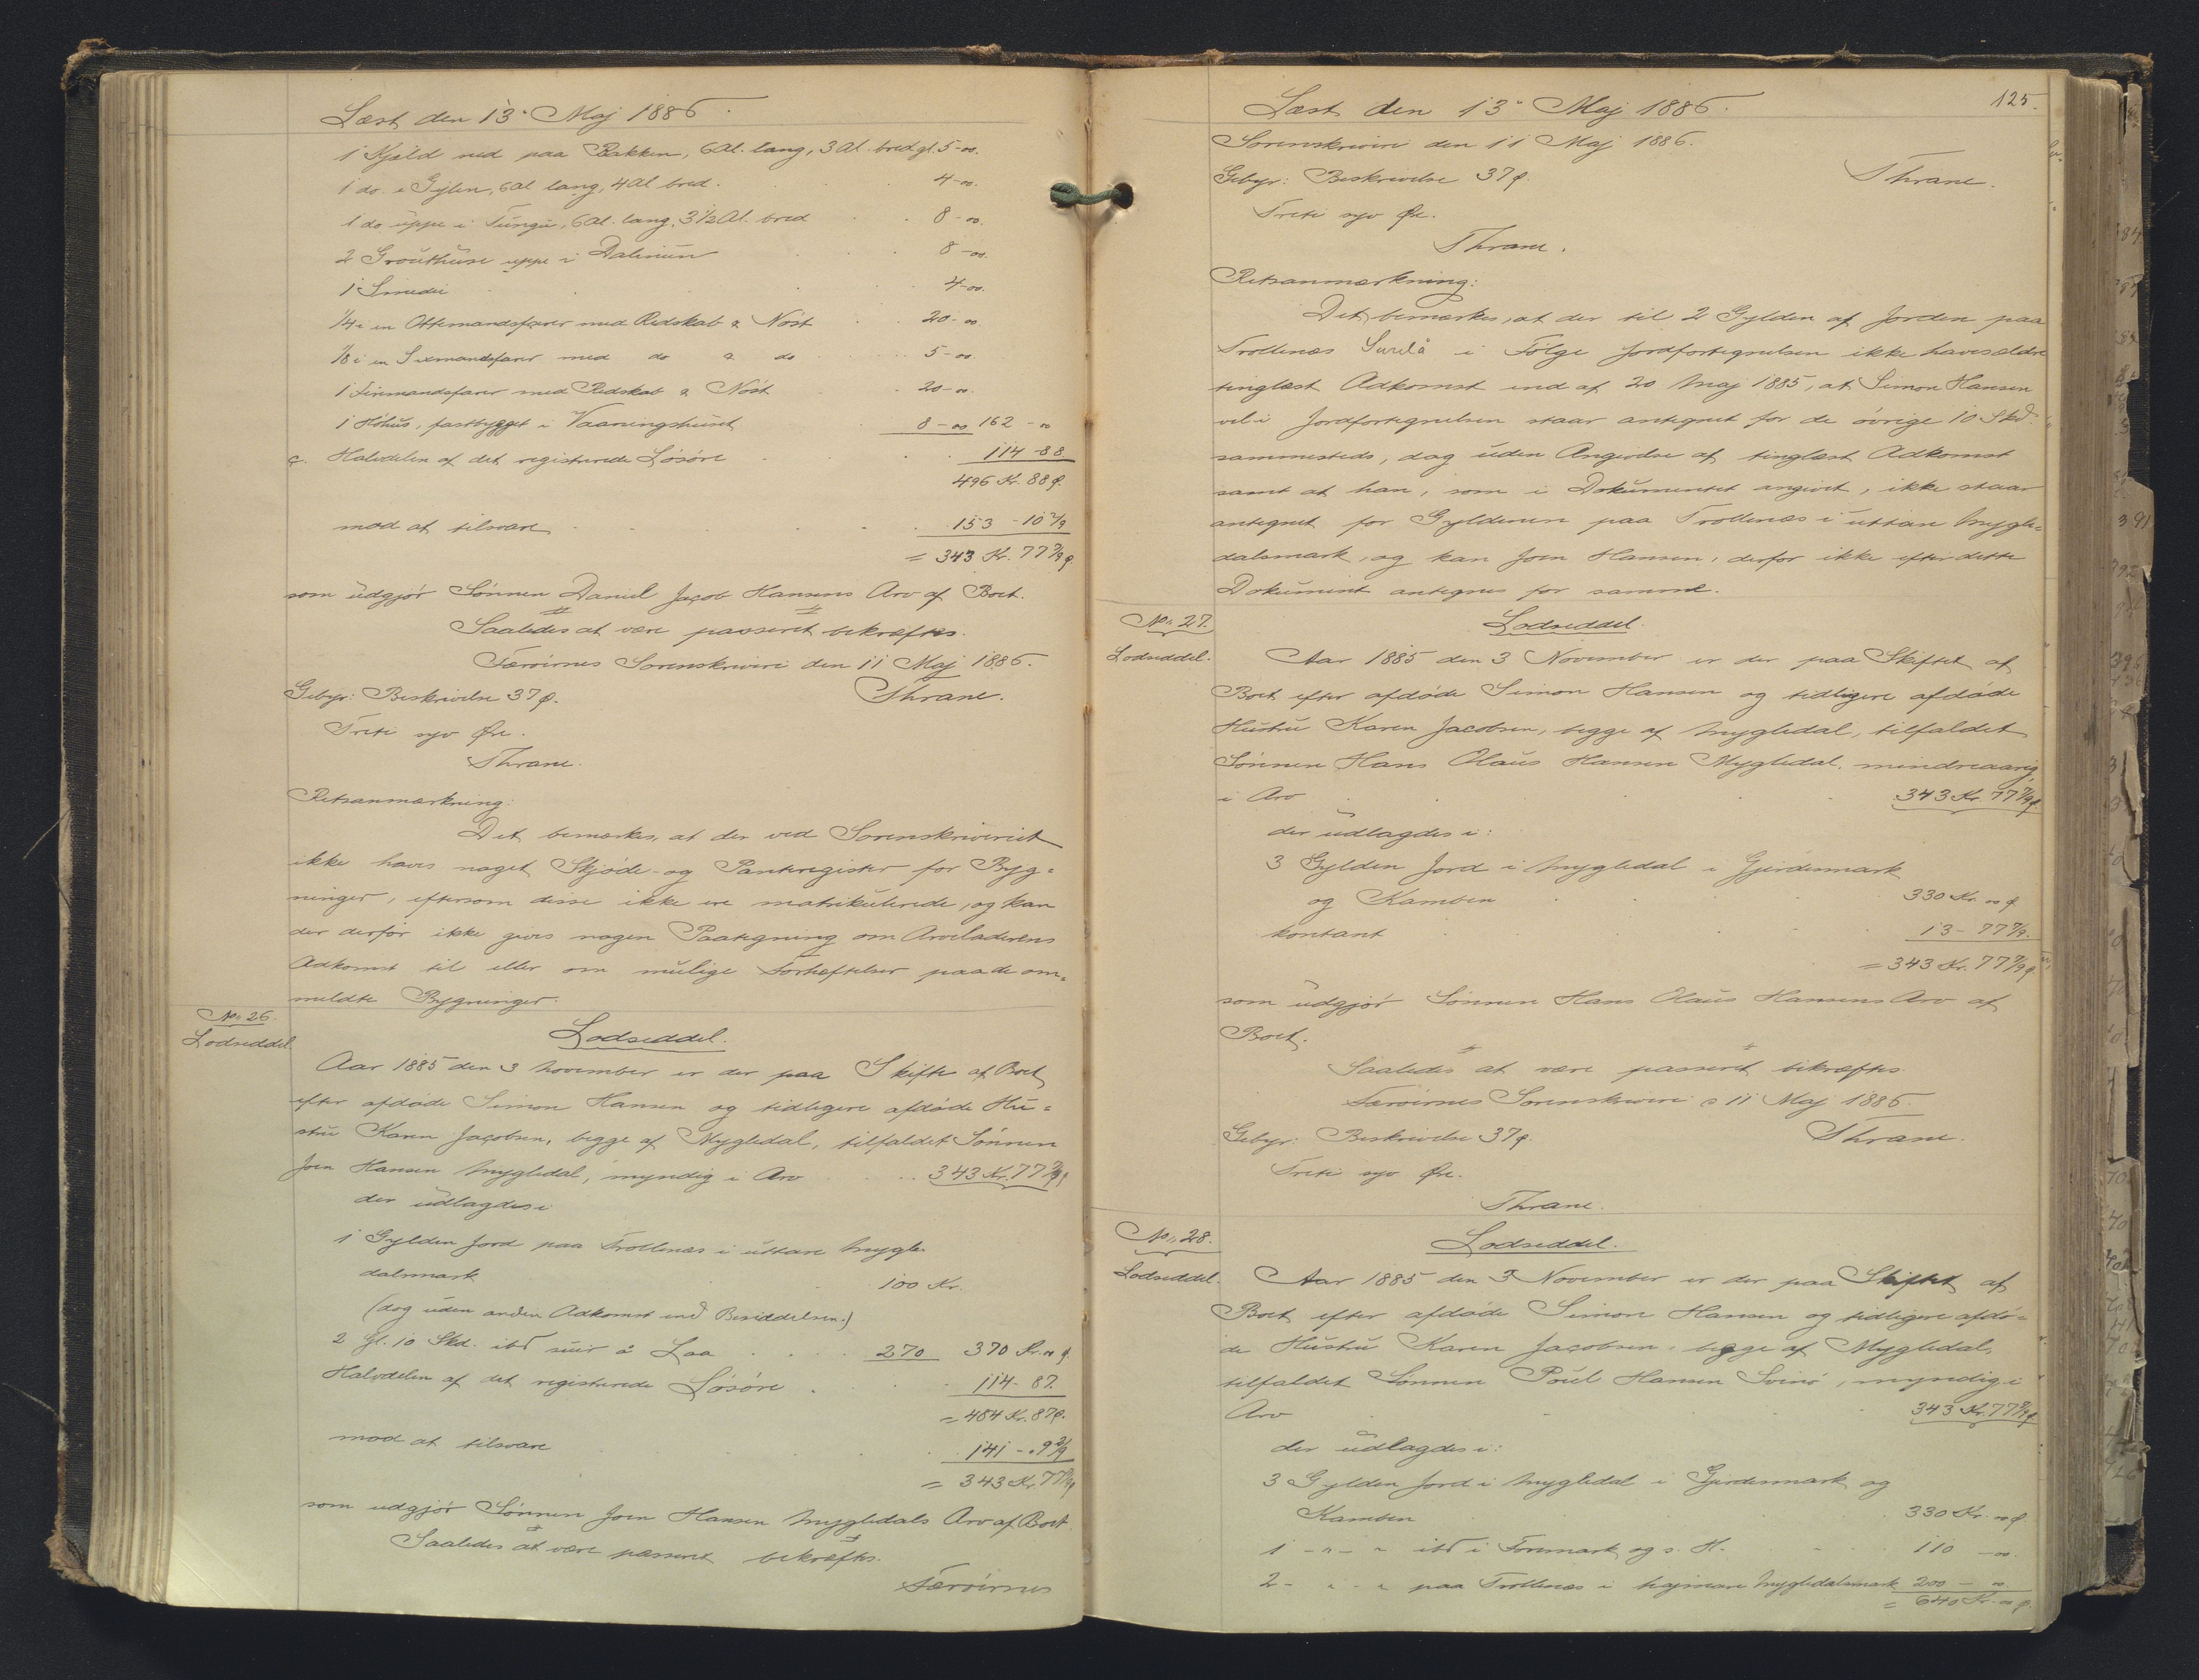 Læst den 13. Maj 1886.
1 Kjald ned paa Bakken, 6 Al. lang, 3 Al. bred gl. 5-00.
1 do. i Gylen, 6 Al lang, 4 Al bred. 4-00.
1 do uppe i Tungu, 6 Al. lang, 3 1/2 Al. bred 8-00.
2 Grouthuse uppe i Dalinum 8-00.
1 Smedie 4-00.
1/4 i en Ottemandsfarer med Redskab & Nøst 20-00.
1/8 i en Sexmandsfarer med do & do 5-00.
1 Firemandsfarer med Redskab & Nøst 20-00.
1 Høhus, fastbygget i Vaaningshuset 8-00 162-00
c. Halvdelen af det registrerede Løsøre 114-88
496 Kr. 88 ø.
mod at tilsvare 153-10 2/9
= 343 Kr. 77 7/9 ø.
som udgjør Sønnen Daniel Jacob Hansens Arv af Boet.
Saaledes at være passeret bekræftes.
Færøernes Sorenskriveri den 11 Maj 1886.
Gebyr: Beskrivelse 37 ø. Thrane.
Treti syv Øre.
Thrane.
Retsanmærkning:
Det bemærkes, at der ved Sorenskriveriet
ikke haves noget Skjøde- og Panteregister for Byg=
ninger, eftersom disse ikke ere matrikulerede, og kan
der derfor ikke gives nogen Paategning om Arveladerens
Adkomst til eller om mulige Forhæftelser paa de om=
meldte Bygninger.
No. 26.
Lodseddel.
Lodseddel.
Aar 1885 den 3 November er der paa Skifte af Boet
efter afdøde Simon Hansen og tidligere afdøde Hu=
stru Karen Jacobsen, begge af Mygledal, tilfaldet Sønnen
Joen Hansen Mygledal, myndig i Arv 343 Kr. 77 7/9 ø
der udlagdes i
1 Gylden Jord paa Trøllenæs i úttare Mygle-
dalsmark 100 Kr.
(dog uden anden Adkomst end Besiddelsen.)
2 Gl. 10 Skd. ibd suur á Laa 270 370 Kr. 00 ø.
Halvdelen af det registrerede Løsøre 114-87.
= 484 Kr. 87 ø.
mod at tilsvare 141-09 2/9
= 343 Kr. 77 7/9 ø
som udgjør Sønnen Joen Hansen Mygledals Arv af Boet.
Saaledes at være passeret bekræftes.
Færøernes
Læst den 13. Maj 1886. 125.
Sorenskriveri den 11 Maj 1886.
Gebyr: Beskrivelse 37 ø. Thrane.
Treti syv Øre.
Thrane.
Retsanmærkning:
Det bemærkes, at der til 2 Gylden af Jorden paa
Trøllenæs i Følge Jordfortegnelsen ikke haves ældre
tinglæst Adkomst end af 20 Maj 1885, at Simon Hansen
vel i Jordfortegnelsen staar antegnet for de øvrige 10 Skd.
sammesteds, dog uden Angivelse af tinglæst Adkomst
samt at han, som i Dokumentet angivet, ikke staar
antegnet for Gyldenen paa Trøllenæs i úttare Mygle=
dalsmark, og kan Joen Hansen, derfor ikke efter dette
Dokument antegnes for samme.
No. 27.
Lodseddel.
Lodseddel.
Aar 1885 den 3 November er der paa Skiftet af
Boet efter afdøde Simon Hansen og tidligere afdøde
Hustru Karen Jacobsen, begge af Mygledal, tilfaldet
Sønnen Hans Olaus Hansen Mygledal, mindreaarig
i Arv 343 Kr. 77 7/9 ø.
der udlagdes i:
3 Gylden Jord i Mygledal i Gjerdesmark
og Kamben 330 Kr. 00 ø
kontant 13-77 7/9.
= 343 Kr. 77 7/9 ø
som udgjør Sønnen Hans Olaus Hansens Arv af
Boet.
Saaledes at være passeret bekræftes.
Færøernes Sorenskriveri d 11 Maj 1886.
Gebyr: Beskrivelse 37 ø. Thrane.
Treti syv Øre.
Thrane.
No. 28.
Lodseddel.
Lodseddel.
Aar 1885 den 3 November er der paa Skiftet af
Boet efter afdøde Simon Hansen og tidligere afdø=
de Hustru Karen Jacobsen, begge af Mygledal,
tilfaldet Sønnen Poul Hansen Svinø, myndig i
Arv 343 Kr. 77 7/9 ø
der udlagdes i:
3 Gylden Jord i Mygledal i Gjerdesmark og
Kamben 330 Kr. 00 ø
1 - " - " ibd i Foremark og s. H. 110-00.
2 - " - " paa Trøllenæs i hajmare Mygledalsmark 200-00.
= 640 Kr. 00 ø.